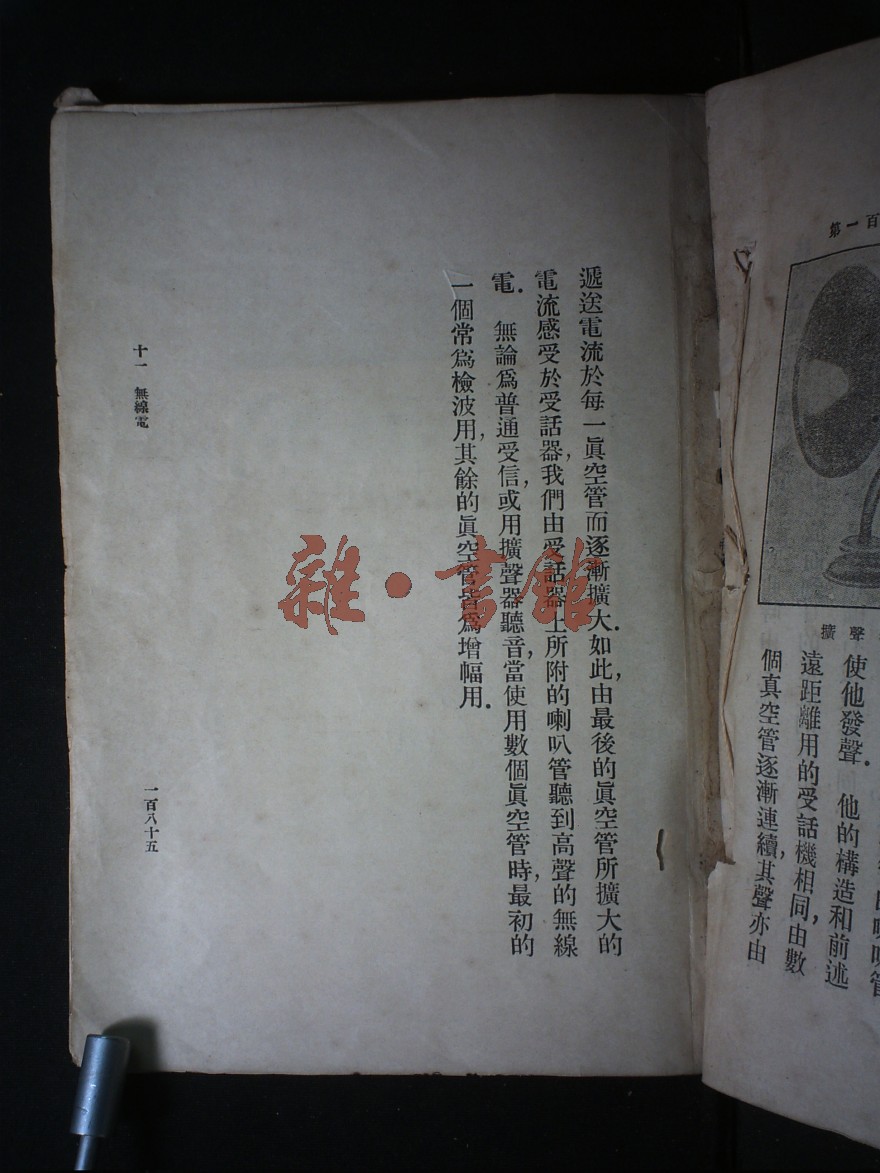 第一百
擴聲
使他發聲．　他的構造和前述
遠距離用的受話機相同，由數
個真空管逐漸連續，其聲亦由
遞送電流於每一眞空管而逐漸擴大．如此，由最後的眞空管所擴大的
電流感受於受話器，我們由受話器上所附的喇叭管聽到高聲的無線
電．　無論爲普通受信，或用擴聲器聽音，當使用數個眞空管時，最初的
一個常爲檢波用，其餘的眞空管皆爲增幅用．
十一　無線電
一百八十五
雜·書館